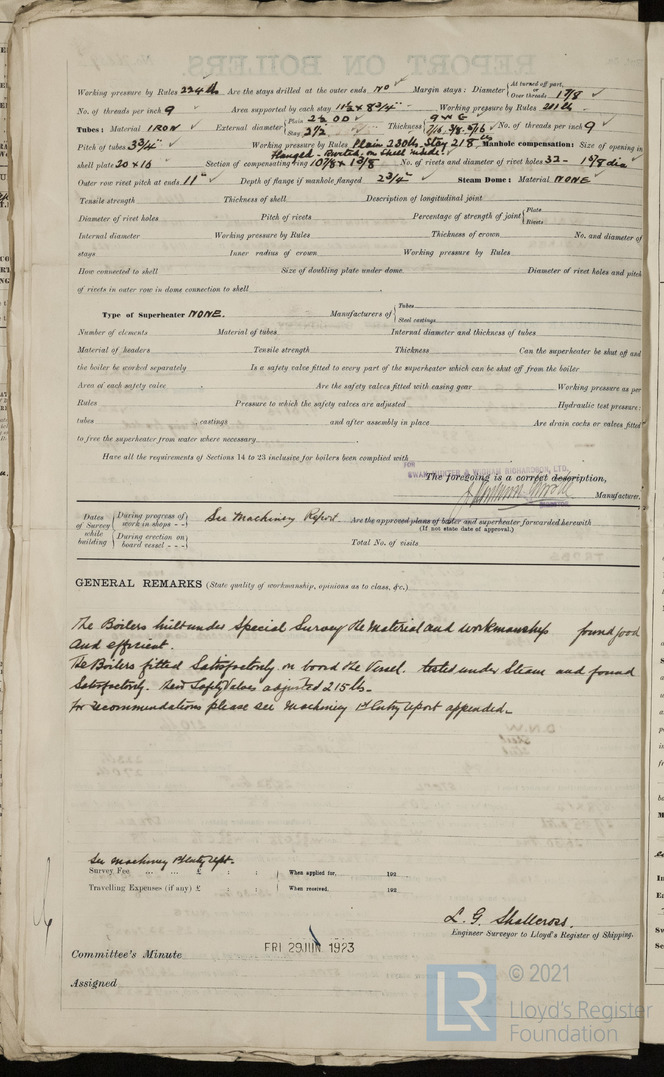 Working pressure by Rules 224 lbs Are the stays drilled at the outer ends NO Margin stays: Diameter { At turned off part, or Over threads 1 7/8
No. of threads per inch 9 Area supported by each stay 11½ × 8¾" Working pressure by Rules 211 lbs
Tubes: Material IRON External diameter { Plain 2½ OD Stay 2½ Thickness { 9 W G 7/16, 3/8, 5/16 No. of threads per inch 9
Pitch of tubes 3¾" Working pressure by Rules Plain 230 lbs, Stay 218 lbs Manhole compensation: Size of opening in
Flanged - Riveted, on Shell inside.
shell plate 20 × 16 Section of compensating ring 10 7/8 × 1 3/8 No. of rivets and diameter of rivet holes 32 - 1 9/8 dia
Outer row rivet pitch at ends 11" Depth of flange if manhole flanged 2¾" Steam Dome: Material NONE
Tensile strength Thickness of shell Description of longitudinal joint
Diameter of rivet holes Pitch of rivets Percentage of strength of joint { Plate Rivets
Internal diameter Working pressure by Rules Thickness of crown No. and diameter of
stays Inner radius of crown Working pressure by Rules
How connected to shell Size of doubling plate under dome Diameter of rivet holes and pitch
of rivets in outer row in dome connection to shell
Type of Superheater NONE. Manufacturers of { Tubes Steel castings
Number of elements Material of tubes Internal diameter and thickness of tubes
Material of headers Tensile strength Thickness Can the superheater be shut off and
the boiler be worked separately Is a safety valve fitted to every part of the superheater which can be shut off from the boiler
Area of each safety valve Are the safety valves fitted with easing gear Working pressure as per
Rules Pressure to which the safety valves are adjusted Hydraulic test pressure:
tubes castings and after assembly in place Are drain cocks or valves fitted
to free the superheater from water where necessary
Have all the requirements of Sections 14 to 23 inclusive for boilers been complied with
FOR
SWAN, HUNTER & WIGHAM RICHARDSON, LTD.
The foregoing is a correct description,
Manufacturer.
Dates of Survey while building { During progress of work in shops - - } { During erection on board vessel - - - } See Machinery Report. Are the approved plans of boiler and superheater forwarded herewith
(If not state date of approval.)
Total No. of visits
GENERAL REMARKS (State quality of workmanship, opinions as to class, &c.)
The Boilers built under Special Survey the Material and workmanship found good
and efficient.
The Boilers fitted Satisfactorily on board the Vessel. tested under Steam and found
Satisfactorily. Safety Valves adjusted 215 lbs.
For recommendations please see Machinery 1st Entry report appended.
See Machinery 1st Entry Rpt.
Survey Fee ... ... £ : : When applied for, 192
Travelling Expenses (if any) £ : : When received, 192
L. G. Shallcross.
Engineer Surveyor to Lloyd's Register of Shipping.
Committee's Minute FRI 29 JUN 1923
Assigned
LR © 2021
Lloyd's Register
Foundation